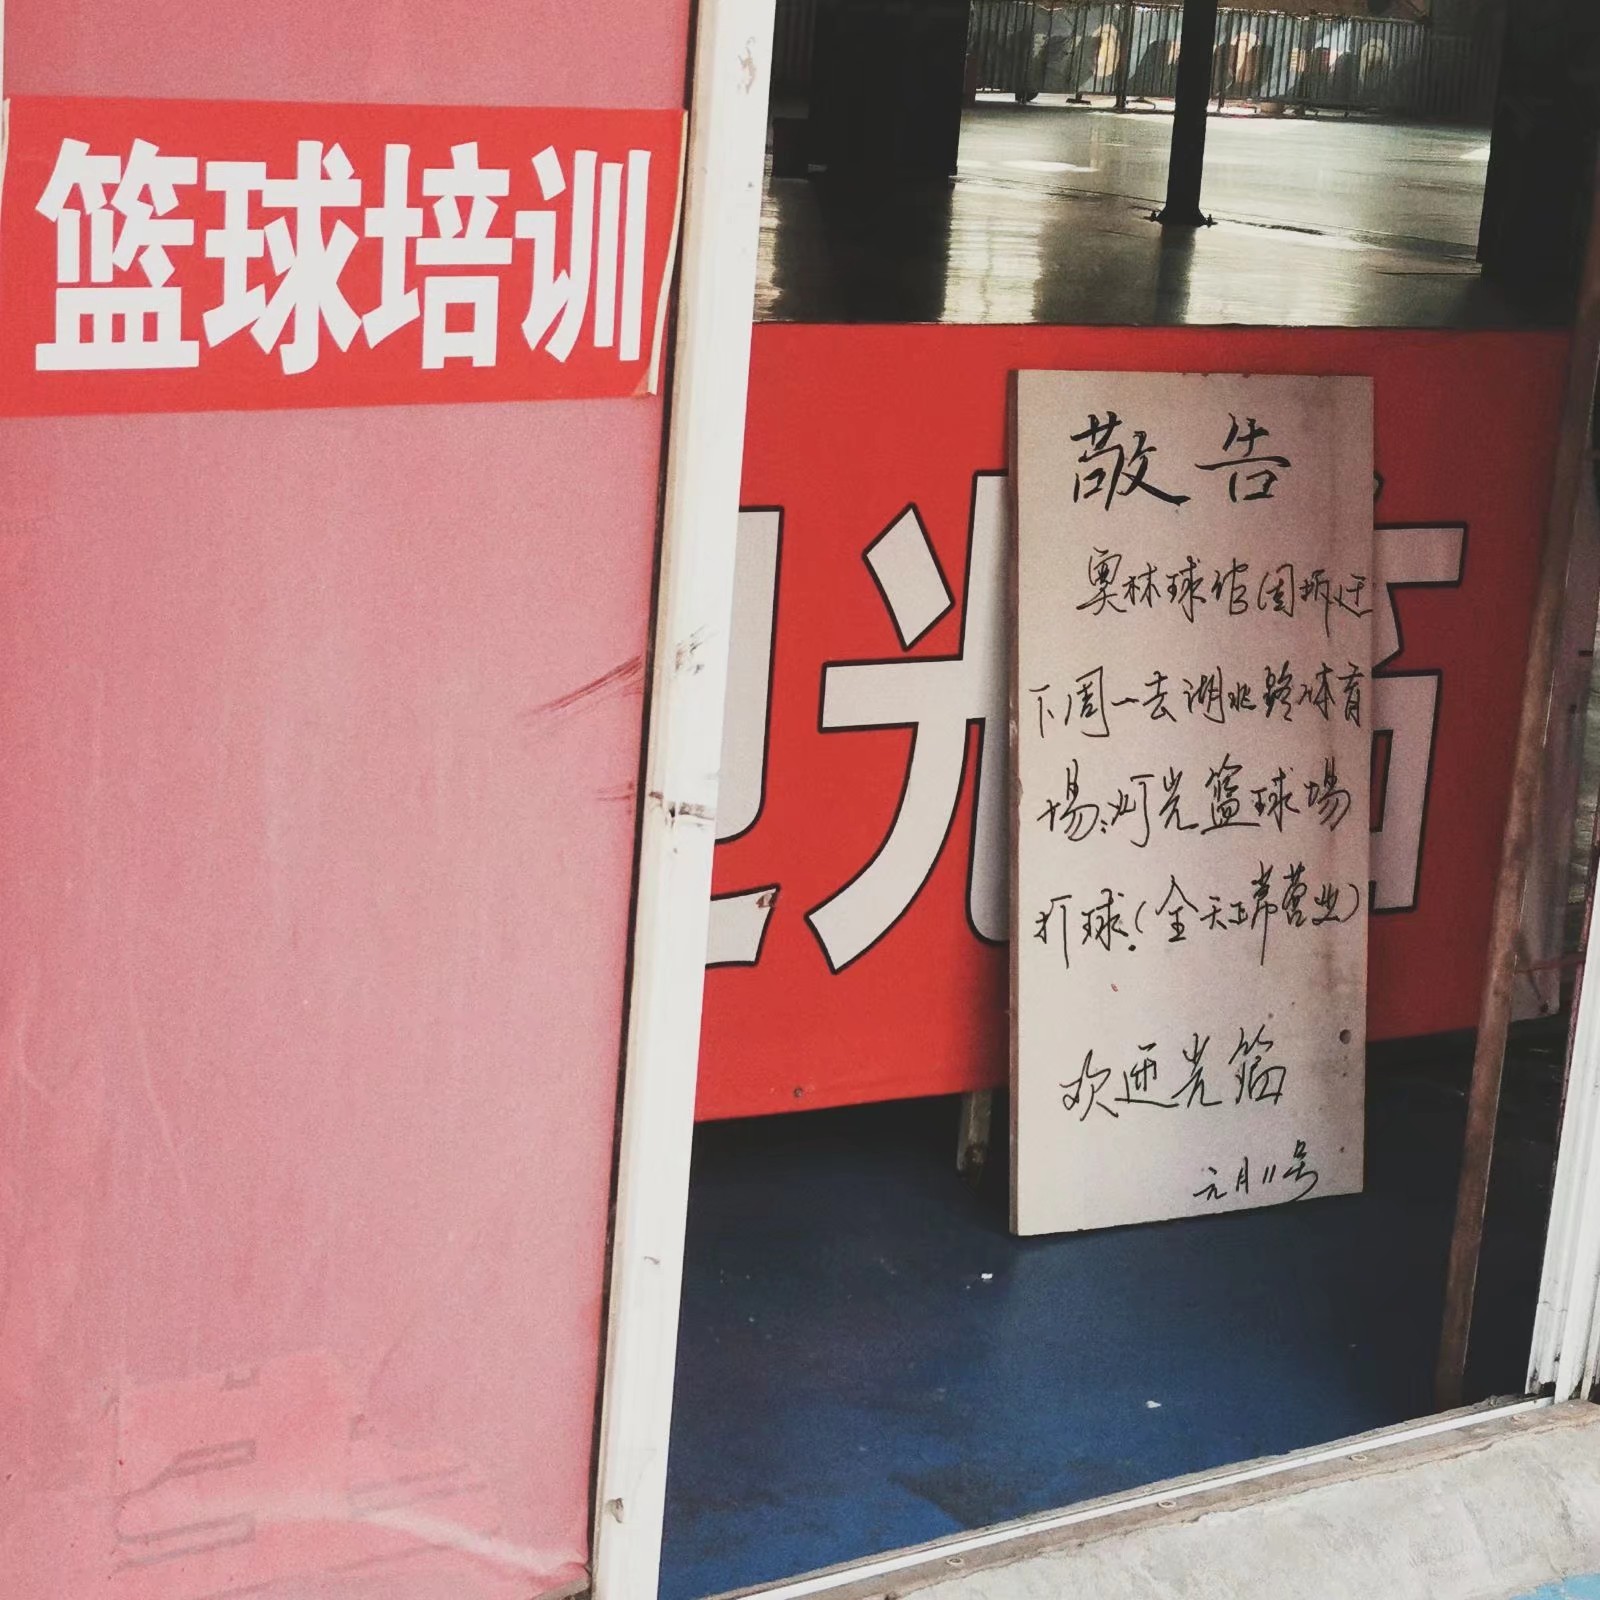 篮球培训
迎光临
敬告
奥林球馆因拆迁
下周一去湖北路体育
场灯光篮球場
打球.(全天正常营业)
欢迎光临
元月11号